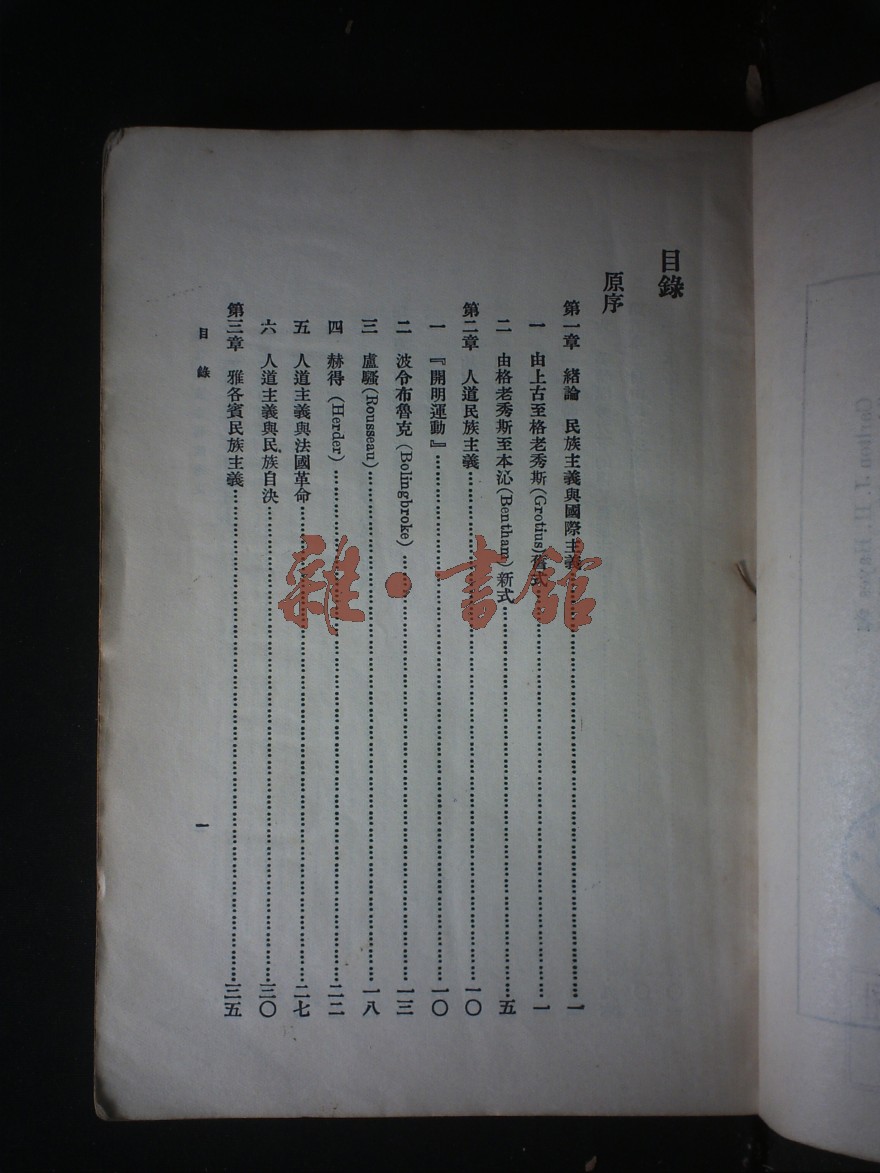 目錄
原序
第一章 緒論 民族主義與國際主義……1
一 由上古至格老秀斯(Grotius)舊式……一
二 由格老秀斯至本沁(Bentham)新式……五
第二章 人道民族主義……一〇
一 『開明運動』……一〇
二 波令布魯克(Bolingbroke)……一三
三 盧騷(Rousseau)……一八
四 赫得(Herder)……二二
五 人道主義與法國革命……二七
六 人道主義與民族自決……三〇
第三章 雅各賓民族主義……三五
目錄
一
雜·書館
Carlton J. H. Hayes